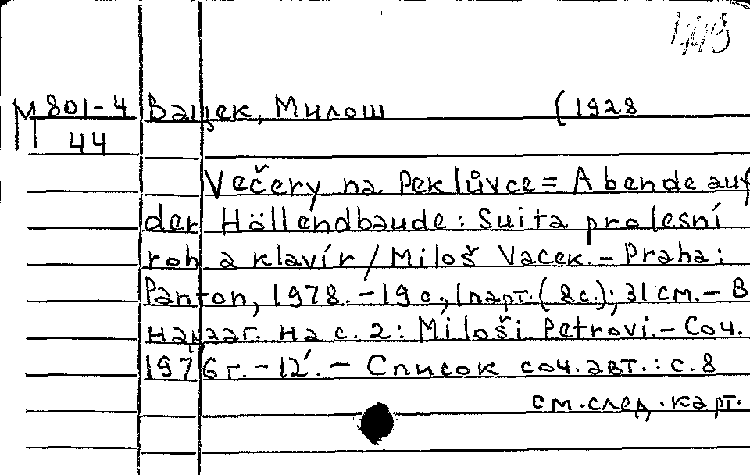 М 801-4 Вацек, Милош (1928
44
Večery na Peklůvce = Abende auf
der Höllendbaude : Suita pro lesní
roh a klavír / Miloš Vacek. - Praha :
Panton, 1978. - 19 с., 1 парт. ( 8 с.) ; 31 см. - В
надзаг. на с. 2 : Miloši Petrovi. - Соч.
1976 г. - 12'. - Список соч. авт. : с. 8
см. след. карт.